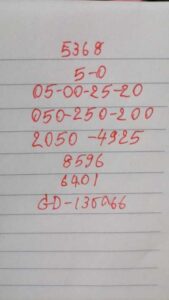 5368
5-0
05-00-25-20
050-250-200
2050-4925
8596
6401